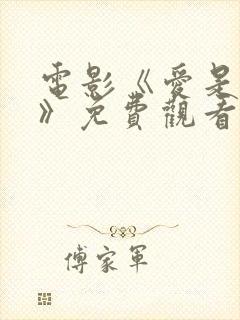 電影《愛是
》免費觀看
傅家軍